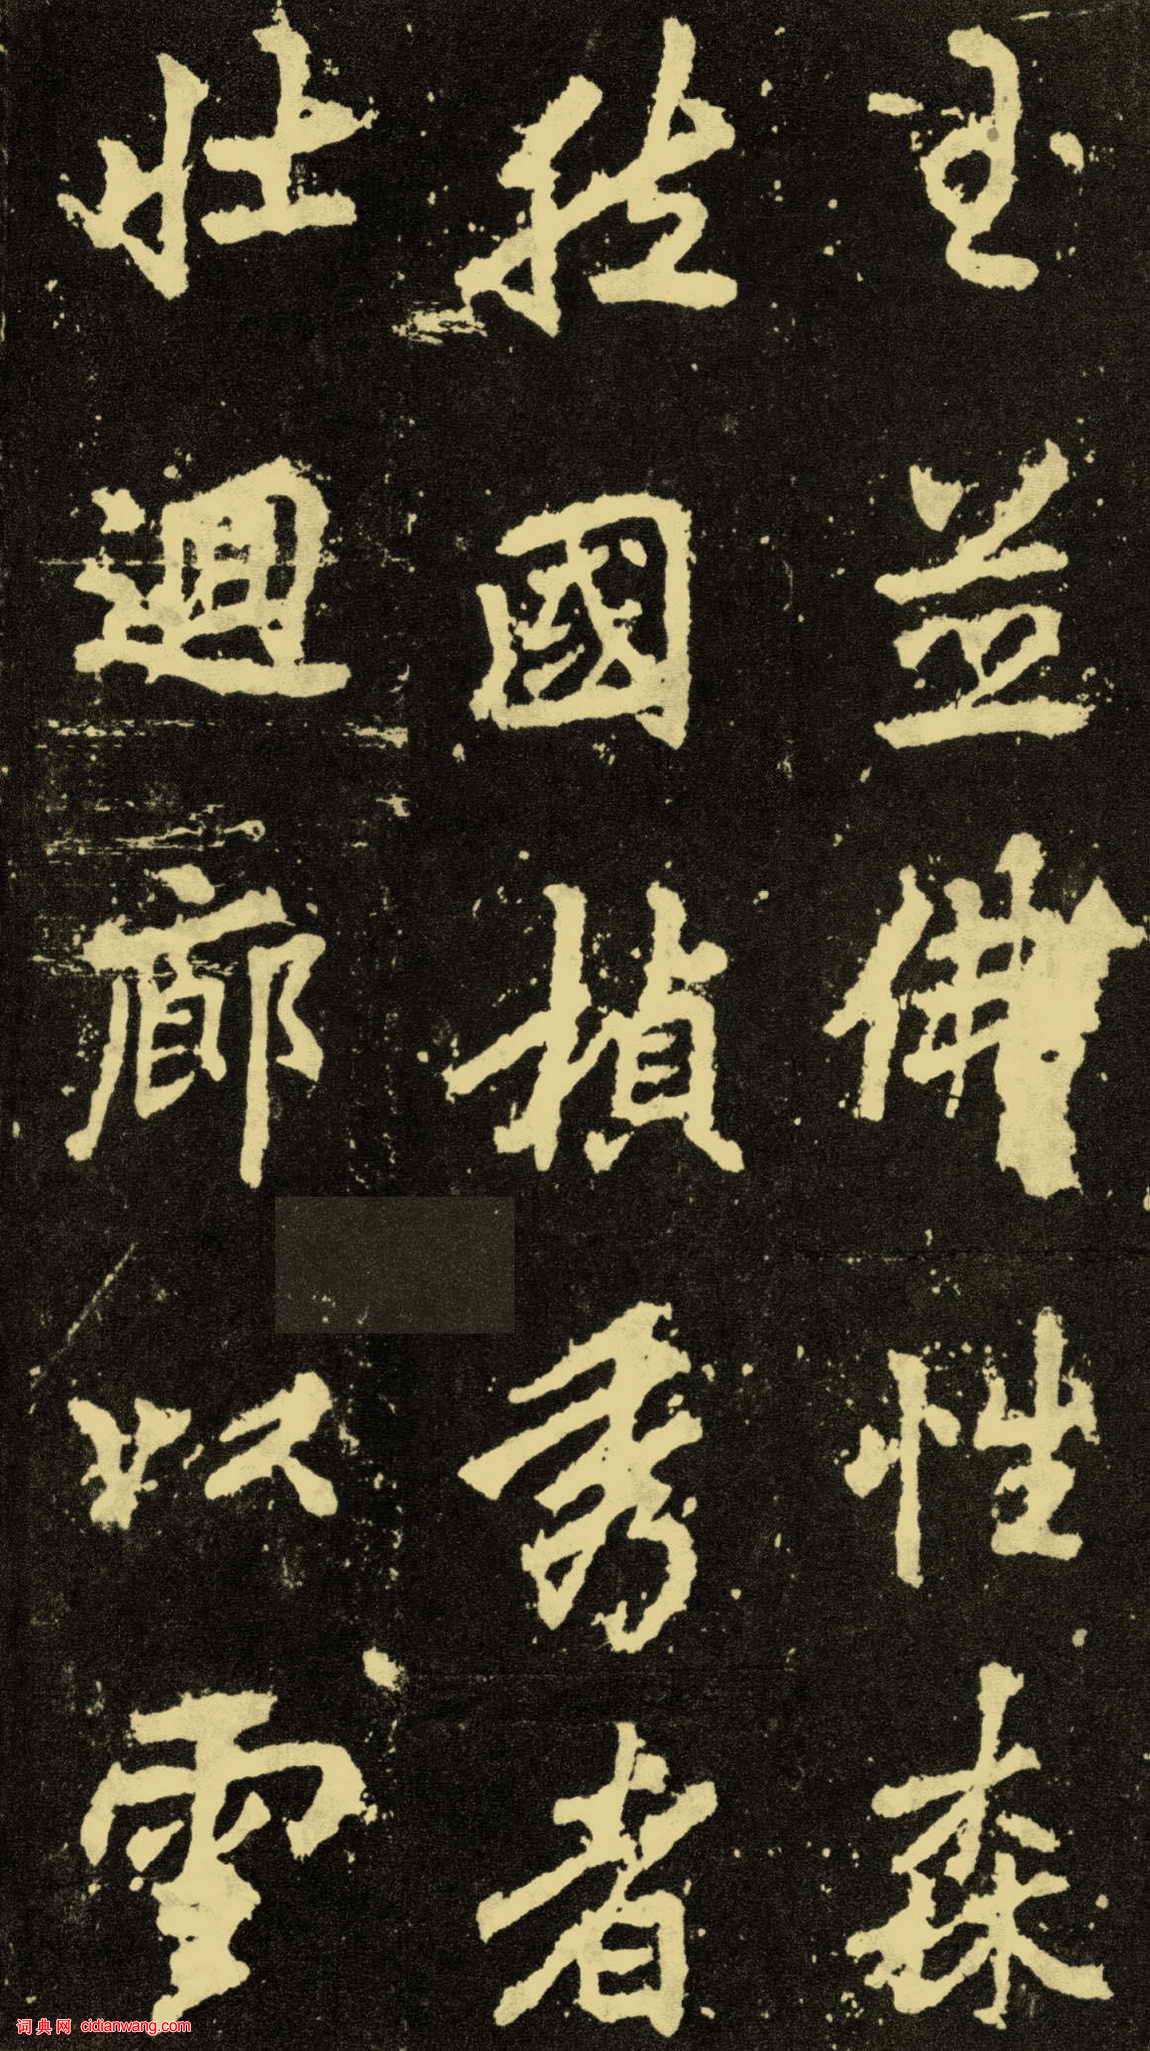 並佛性森
挺國楨秀者
壯迴廊以雲
詞典網 cidianwang.com